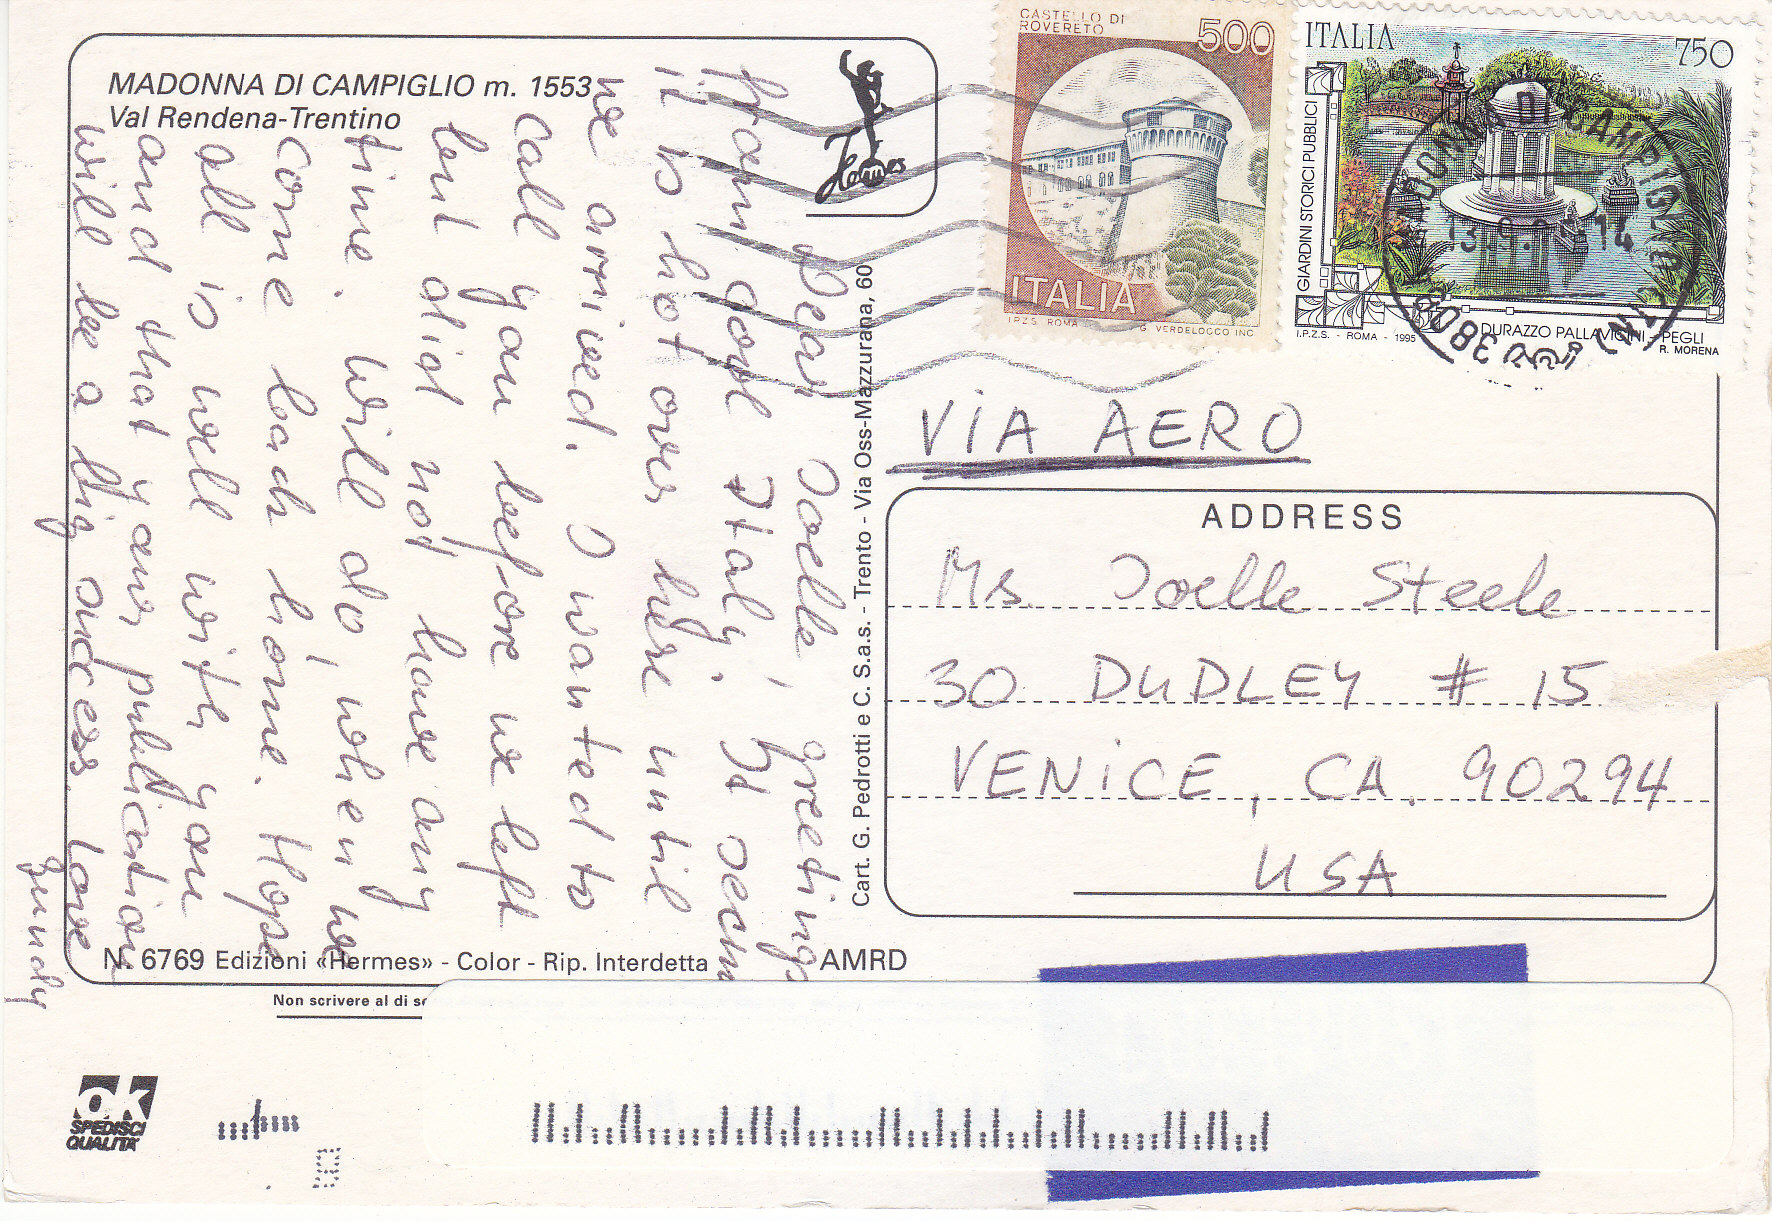 MADONNA DI CAMPIGLIO m. 1553
Val Rendena-Trentino
Hermes
CASTELLO DI
ROVERETO
500
ITALIA
I.P.Z.S. ROMA
G. VERDELOCCO INC.
ITALIA
750
GIARDINI STORICI PUBBLICI
DURAZZO PALLAVICINI - PEGLI
I.P.Z.S. - ROMA - 1995
R. MORENA
MADONNA DI CAMPIGLIO
38084
Dear Joelle, greetings
from cool Italy. It seems
it is hot over here until
we arrived. I wanted to
call you before we left
but did not have any
time. Will do, when we
come back home. Hope
all is well with you
and that your publication
will be a big success. Love
Cart. G. Pedrotti e C. S.a.s. - Trento - Via Oss-Mazzurana, 60
VIA AERO
ADDRESS
Ms. Joelle Steele
30 DUDLEY # 15
VENICE, CA. 90294
USA
N. 6769 Edizioni «Hermes» - Color - Rip. Interdetta
AMRD
Non scrivere al di
ok
SPEDISCI
QUALITÀ